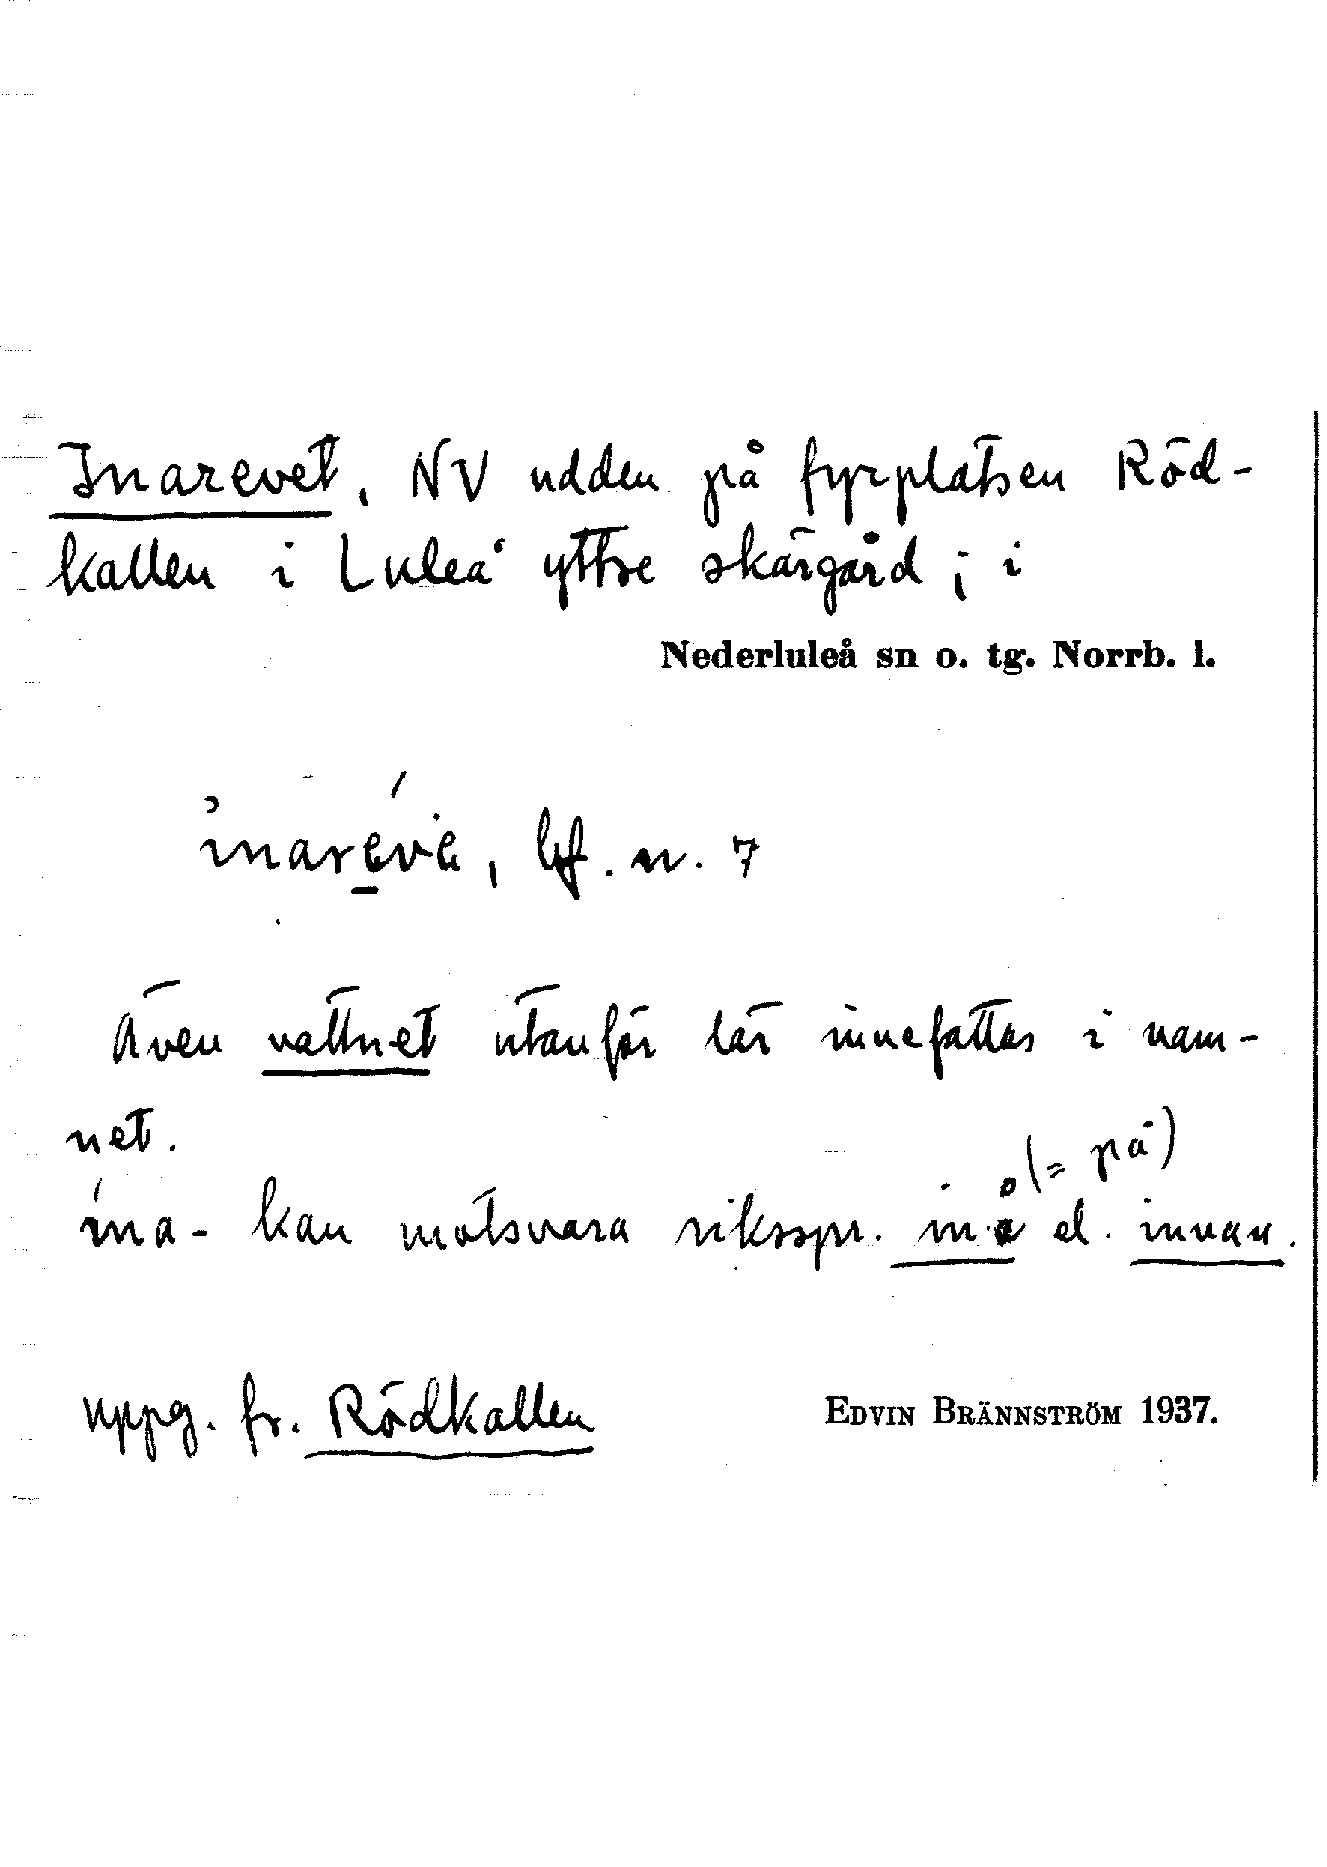 Inarevet, NV udden på fyrplatsen Röd-
kallen i Luleå yttre skärgård; i
Nederluleå sn o. tg. Norrb. l.
bf. n. 7
Även vattnet utanför lär innefattas i nam-
net.
ina- kan motsvara riksspr. inå (= på) el. innan.
uppg. fr. Rödkallen
EDVIN BRÄNNSTRÖM 1937.